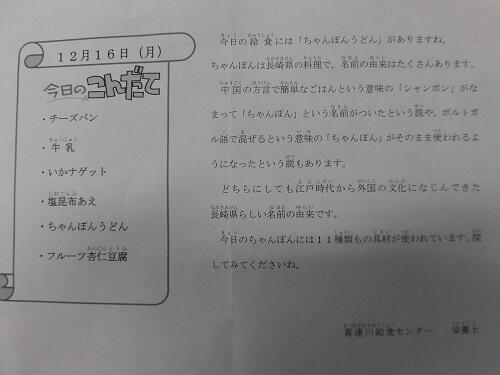 12月16日(月)
今日のこんだて
・チーズパン
・牛乳
・いかナゲット
・塩昆布あえ
・ちゃんぽんうどん
・フルーツ杏仁豆腐
今日の給食には「ちゃんぽんうどん」がありますね。
ちゃんぽんは長崎県の料理で、名前の由来はたくさんあります。
中国の方言で簡単なごはんという意味の「シャンポン」がな
まって「ちゃんぽん」という名前がついたという説や、ポルトガ
ル語で混ぜるという意味の「ちゃんぽん」がそのまま使われるよ
うになったという説もあります。
どちらにしても江戸時代から外国の文化になじんできた
長崎県らしい名前の由来です。
今日のちゃんぽんには11種類もの具材が使われています。探
してみてくださいね。
喜連川給食センター 栄養士